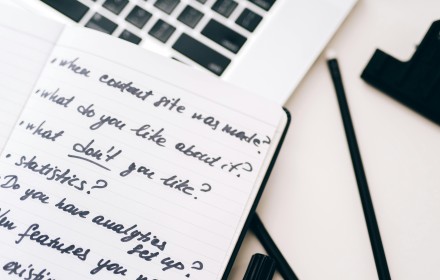 • when content site was made?
• what do you like about it?
• what don't you like?
• statistics?
• Do you have analytics
set up?
features you
existi